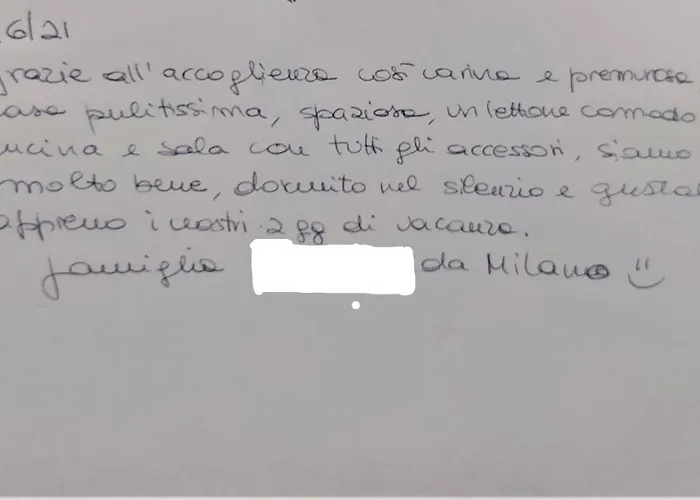 6/21
grazie all'accoglienza così carina e premurosa
casa pulitissima, spaziosa, un lettone comodo
ucina e sala con tutti gli accessori, siamo
molto bene, dormito nel silenzio e gustat
appieno i nostri 2 gg di vacanza.
famiglia da Milano